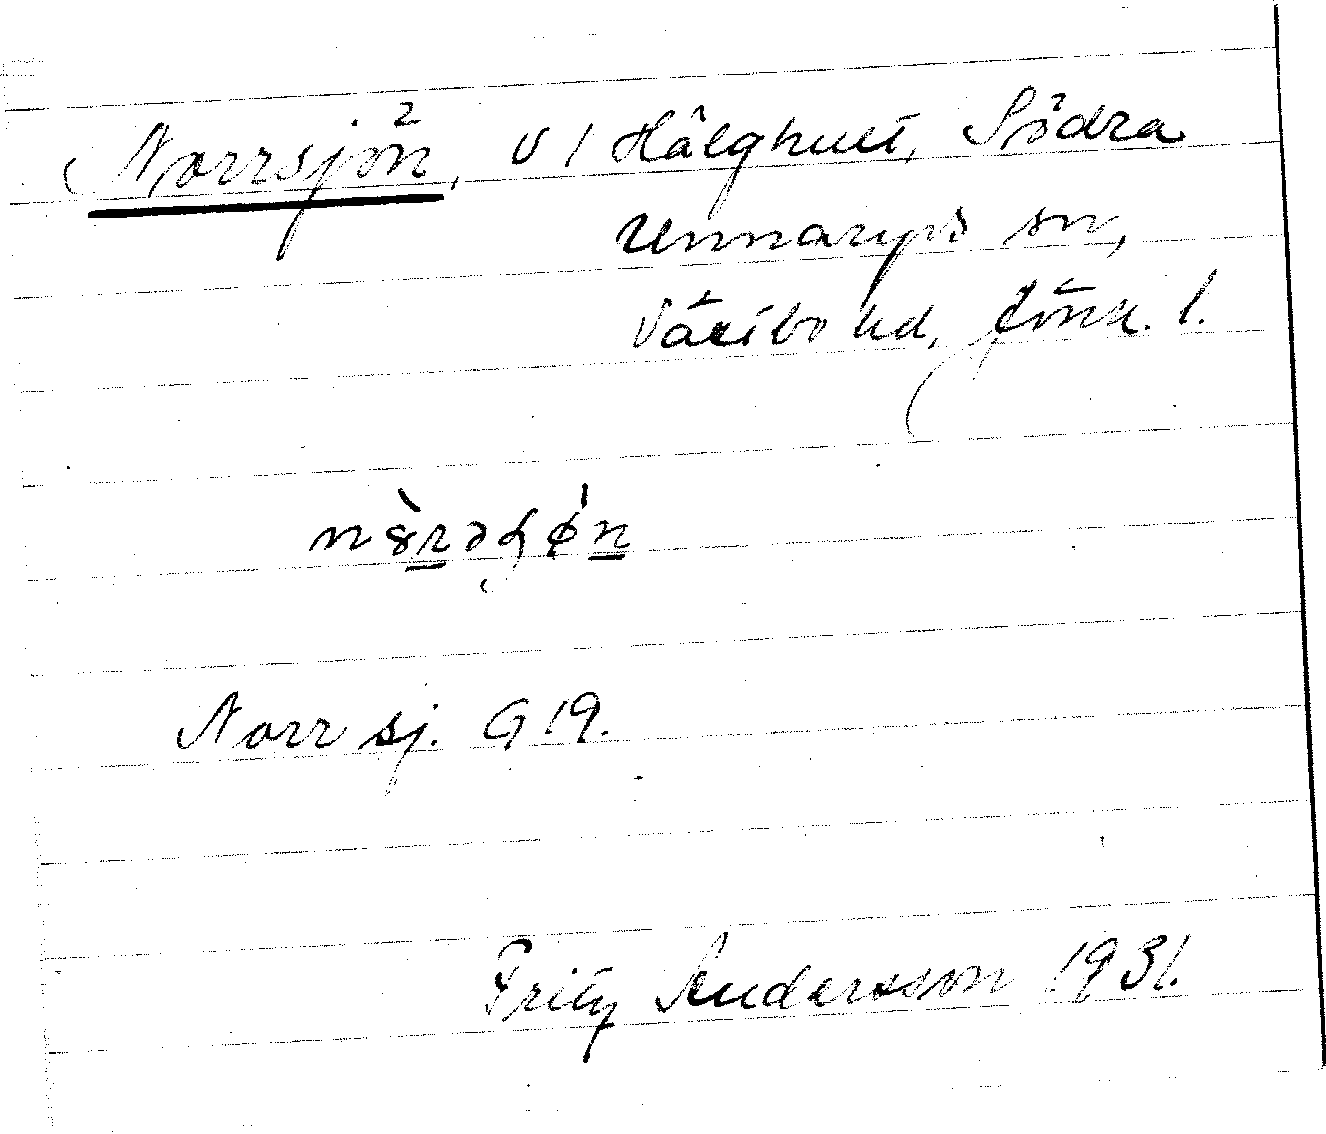 Norrsjön, V / Hålghult, Södra
Unnaryds sn,
Västbo hd, Jönk. l.
Norrsj. G 19.
Fritz Andersson 1931.